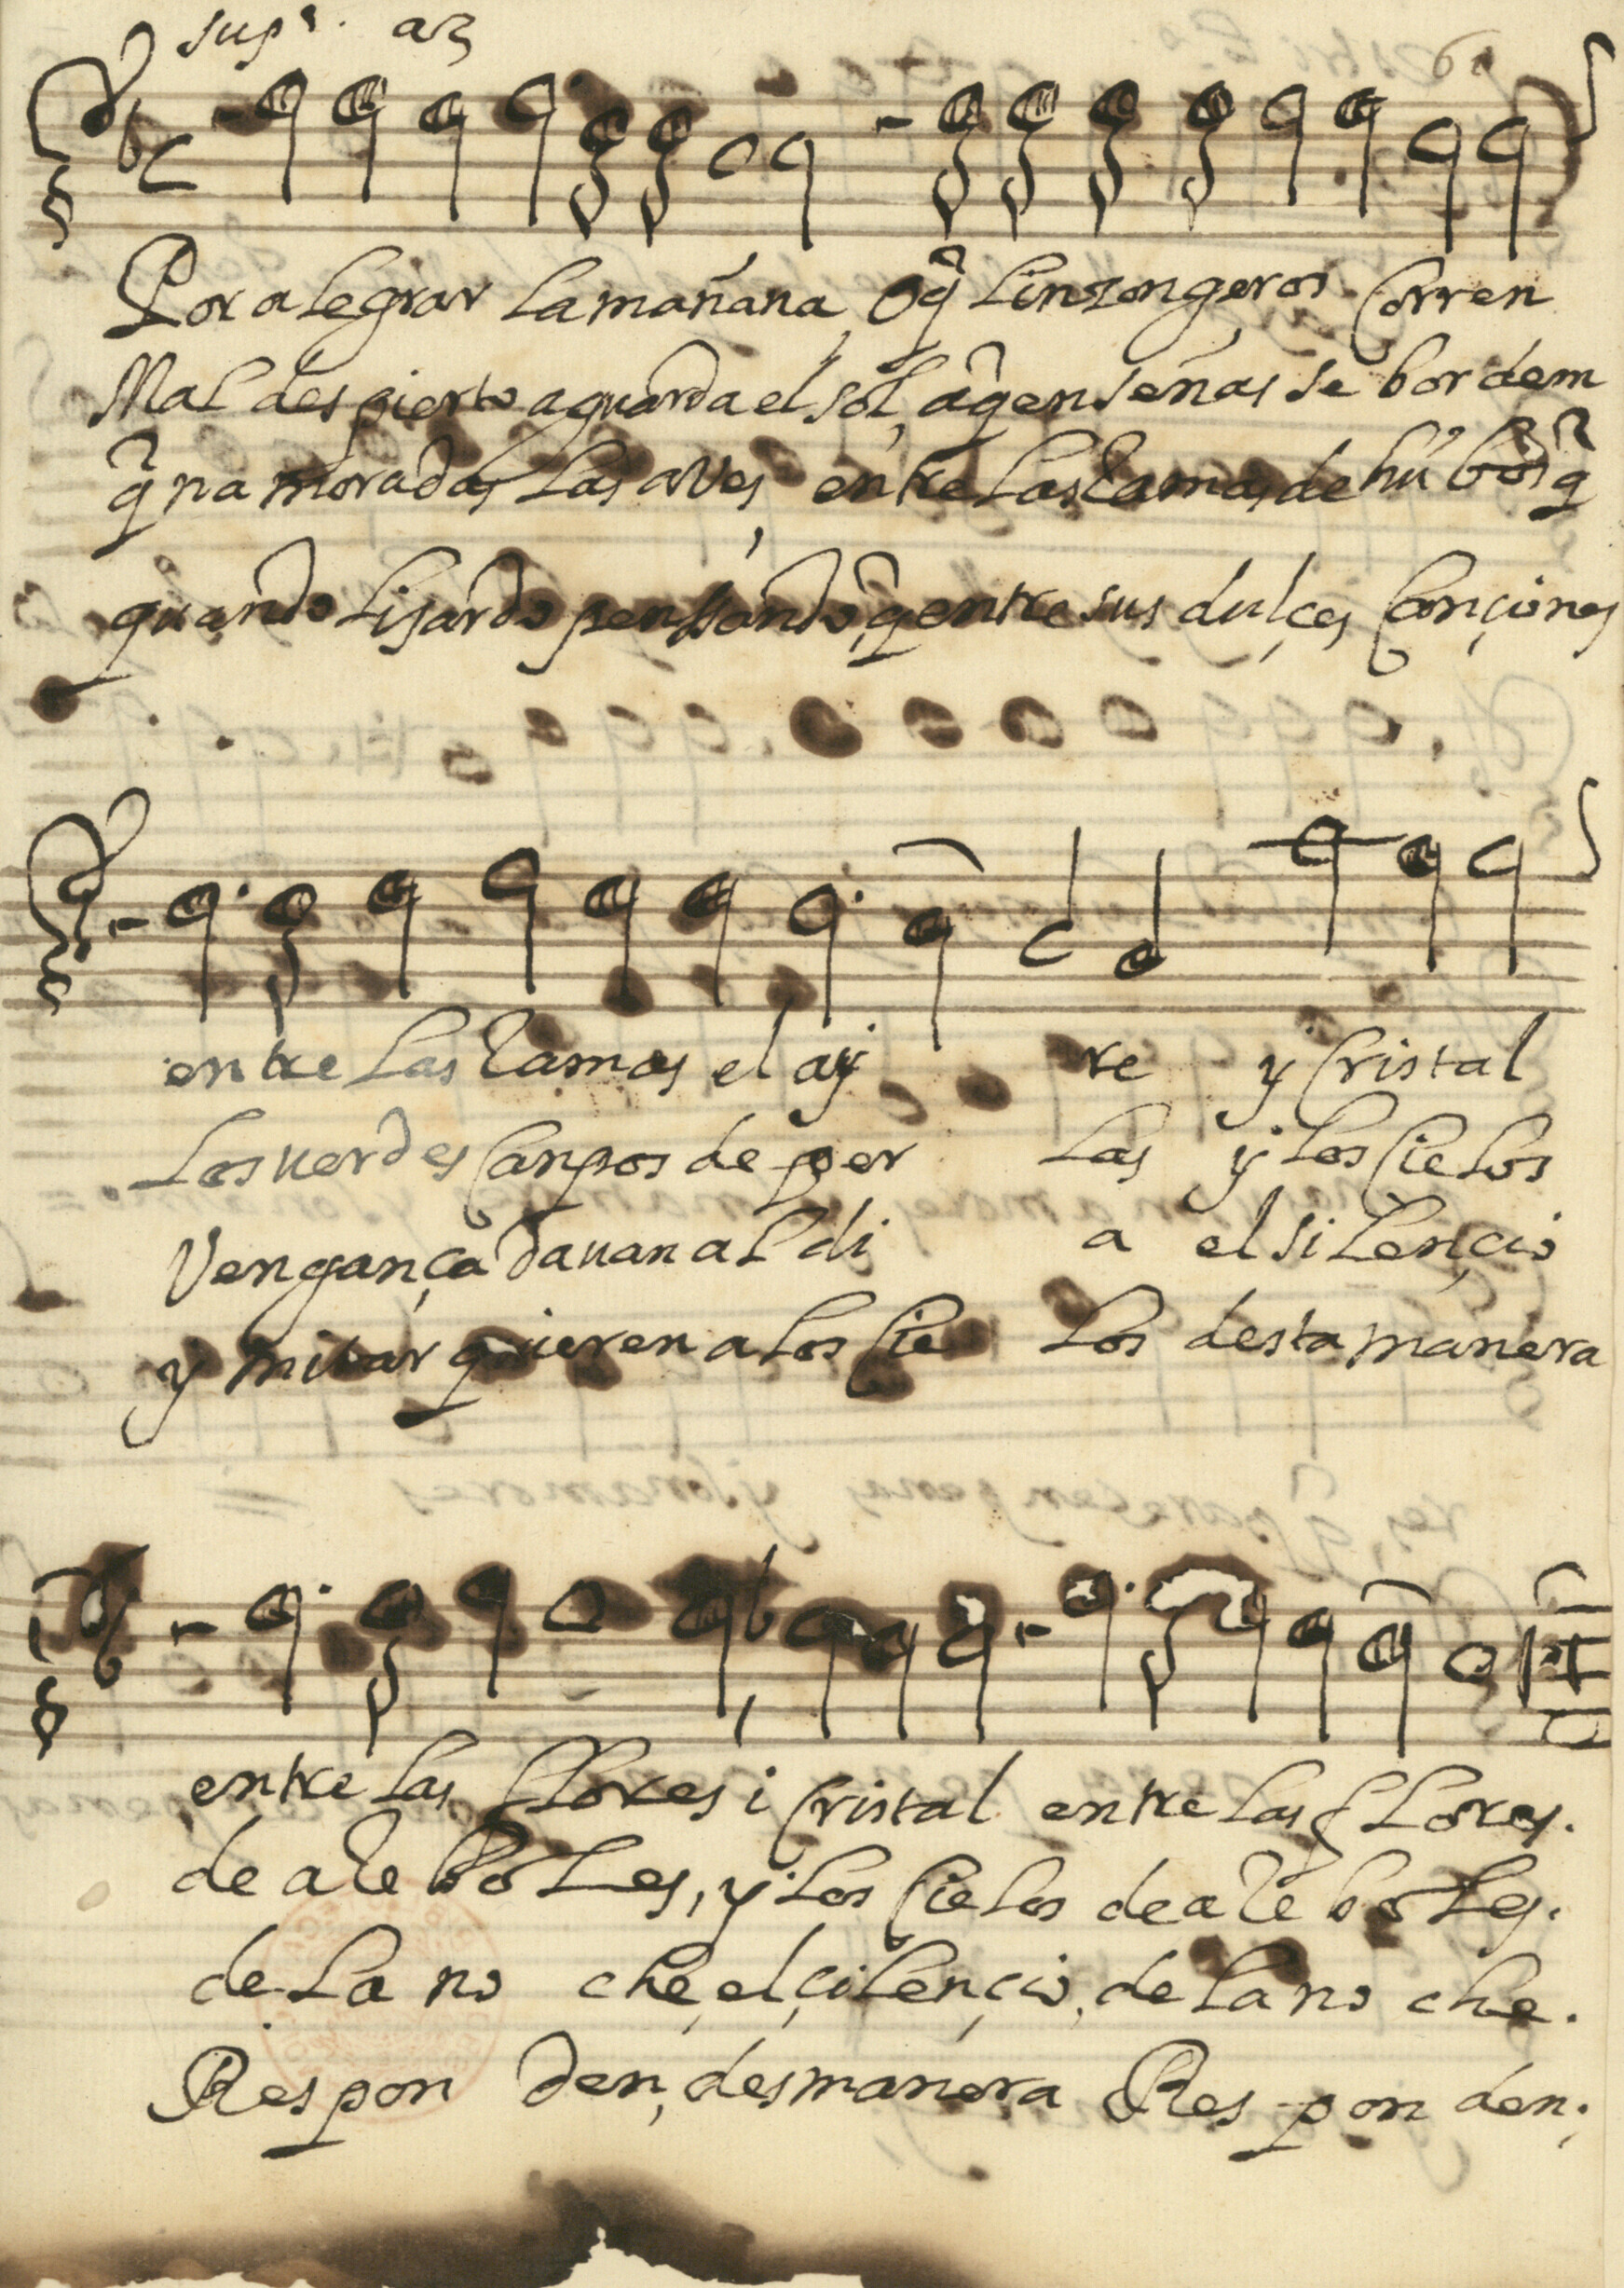 supᵉ. a3
Por alegrar la mañana, oy linzongeros Corren
Mal despierto aguarda el sol, a q̃ en señas se borden
q̃ namoradas las aves, entre las Ramas de hũ bosq̃
quando Lisardo penssando, q̃ entre sus dulçes Cançiones
entre las Ramas el ay re y Cristal
Los uerdes Canpos de per las y los Cielos
Vengança dauan al di a el silençio
y mitar quieren a los Cie los desta manera
entre las flores i Cristal entre las flores.
de a Re bo Les, y los Cielos de a Re bo Les.
de La no che, el çilençio, de la no che.
Respon den, desmanera Res pon den;